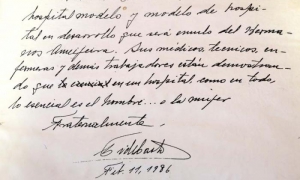 hospital modelo y modelo de hospi-
tal en desarrollo que será émulo del
nos
Sus médicos, técnicos, en-
fermeras y demás trabajadores están demostran-
do que en un hospital, como en todo,
lo esencial es el hombre... o la mujer
Fraternalmente,
Fidel Castro
Feb. 11, 1986